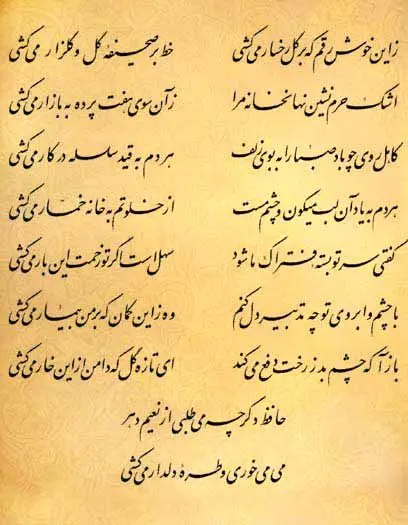 زاین خوش رقم که بر گل رخسار می‌کشی خط بر صحیفهٔ گل و گلزار می‌کشی
اشک حرم نشین نهانخانه مرا زآن سوی هفت پرده به بازار می‌کشی
کاهل روی چو باد صبا را به بوی زلف هر دم به قید سلسله در کار می‌کشی
هر دم به یاد آن لب میگون و چشم مست از خلوتم به خانه خمار می‌کشی
گفتی سر تو بسته فتراک ما شود سهل است اگر تو زحمت این بار می‌کشی
با چشم و ابروی تو چه تدبیر دل کنم وه زاین کمان که بر من بیمار می‌کشی
بازآ که چشم بد ز رخت دفع می‌کند ای تازه گل که دامن از این خار می‌کشی
حافظ دگر چه می‌طلبی از نعیم دهر
می می‌خوری و طره دلدار می‌کشی